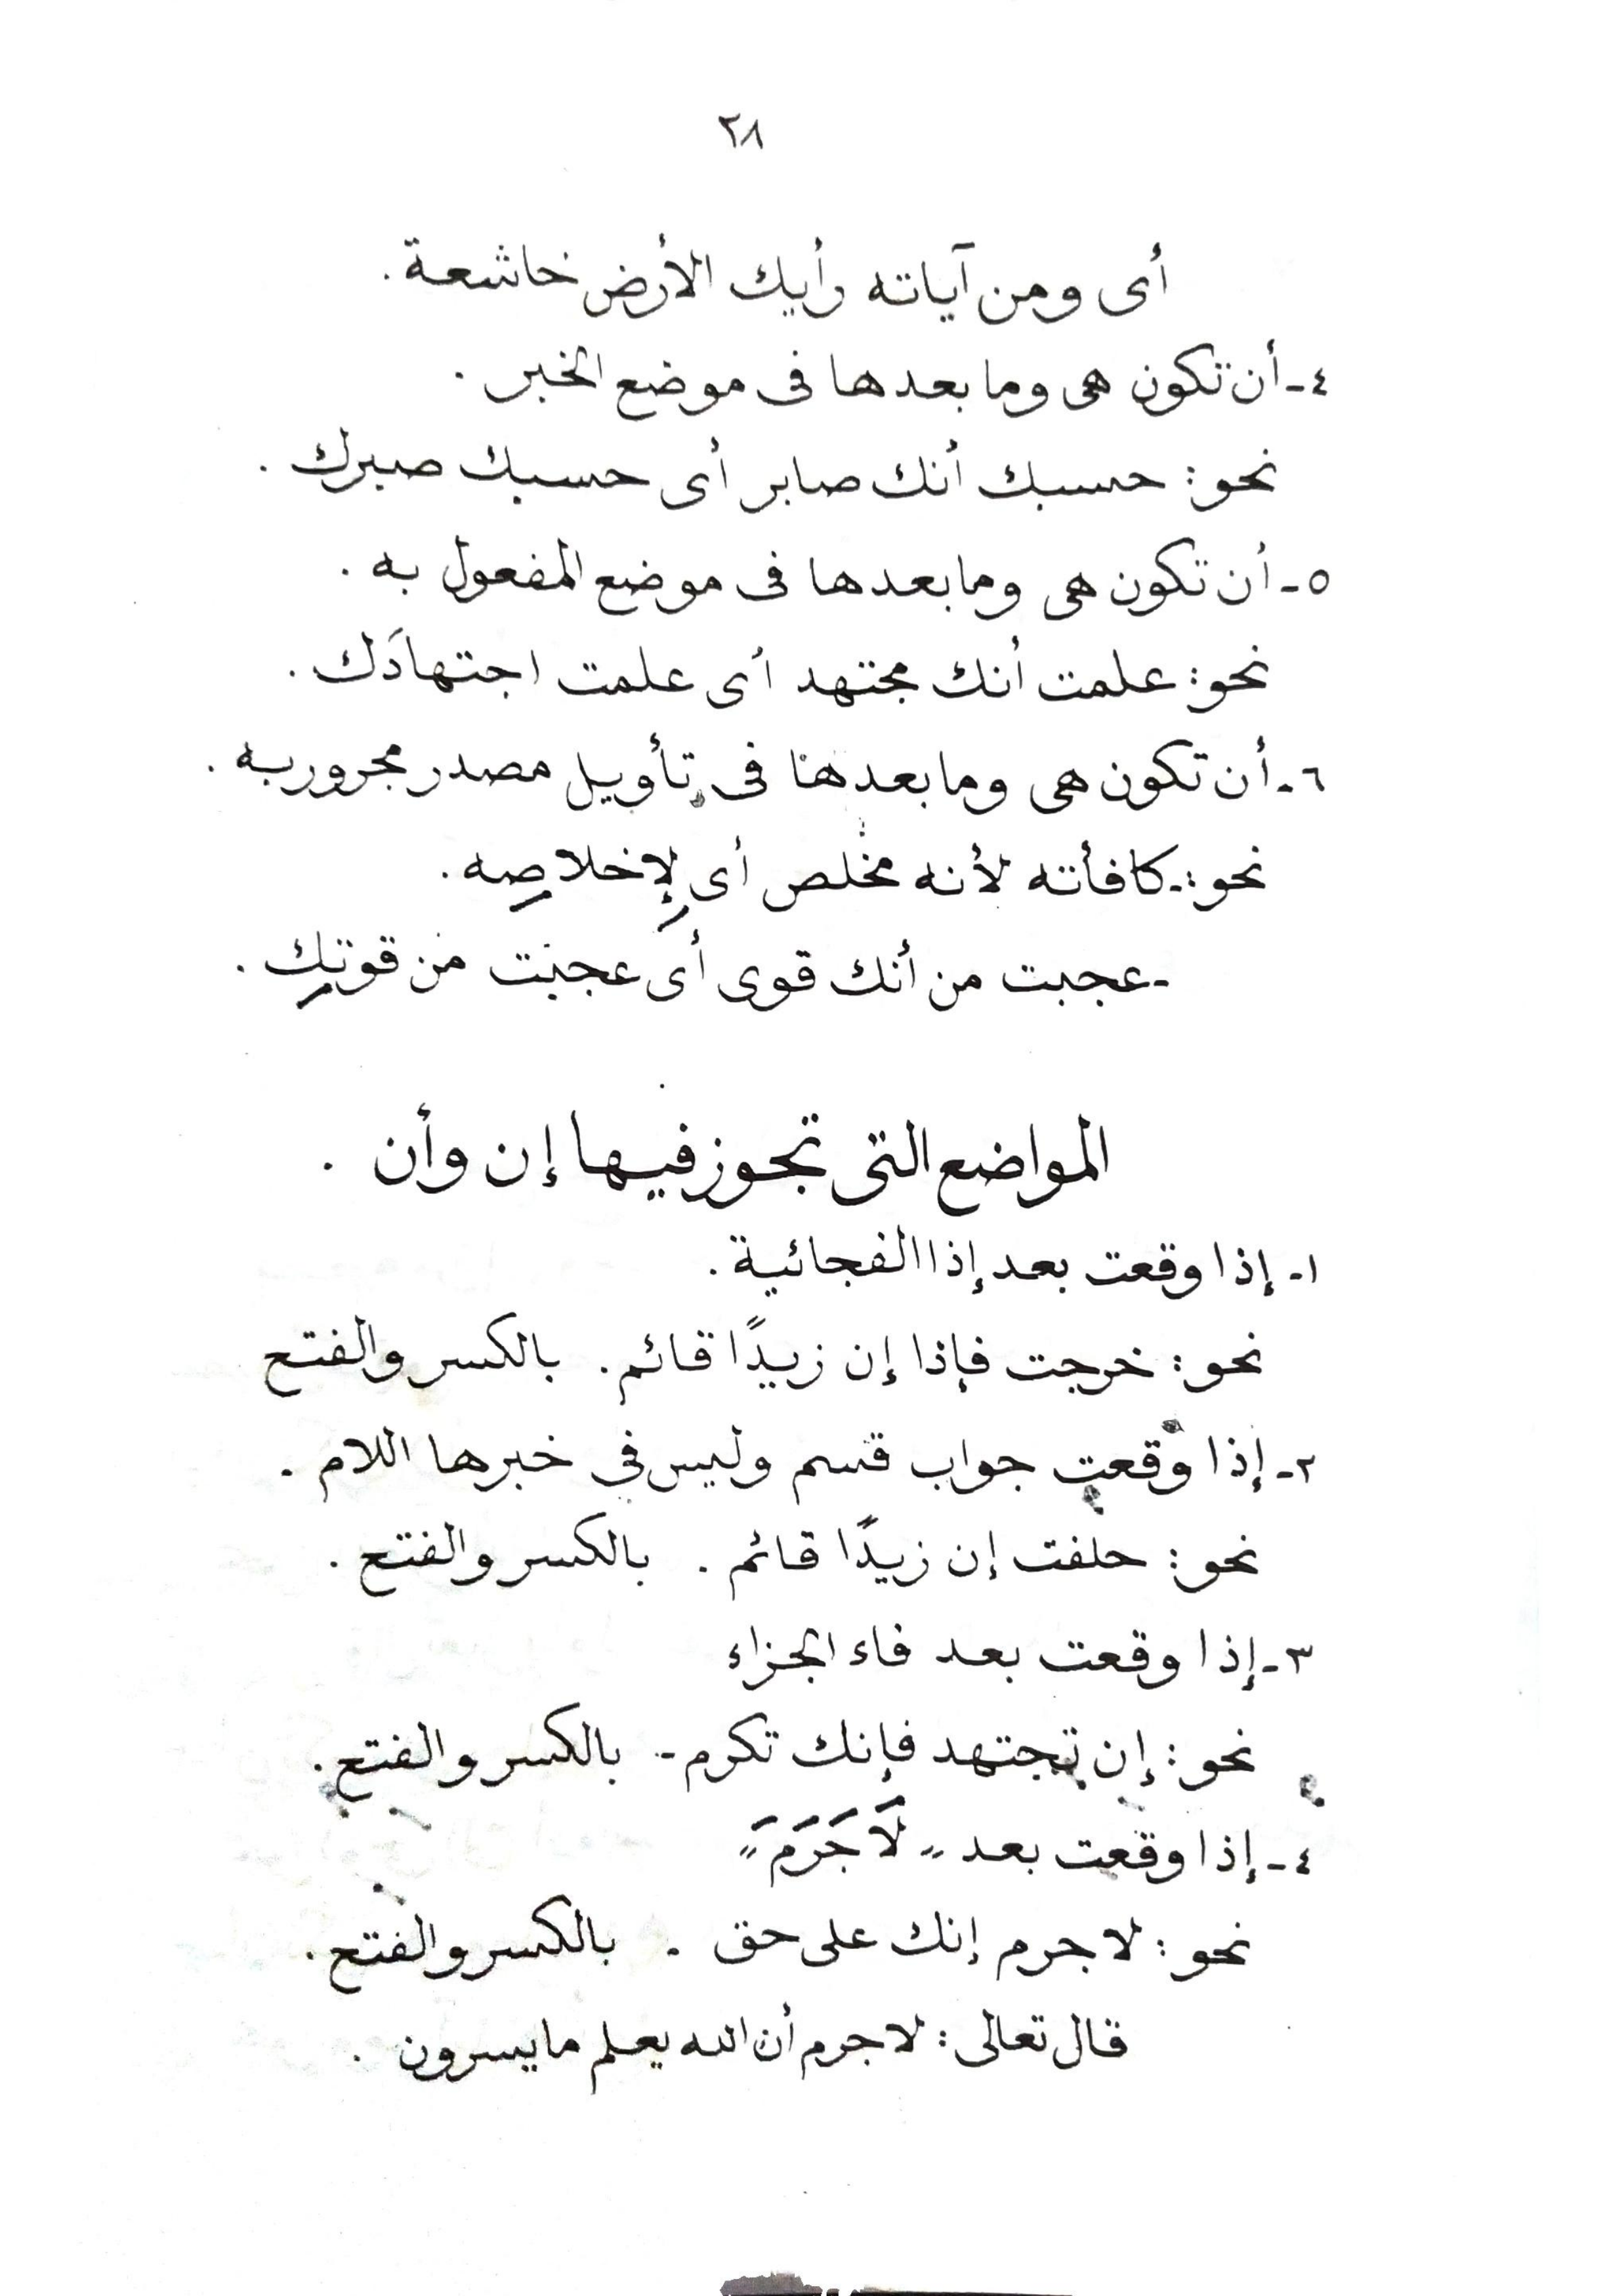 ٢٨
أى ومن آياته رأيك الأرض خاشعة.
٤- أن تكون هى وما بعدها فى موضع الخبر.
نحو: حسبك أنك صابر أى حسبك صبرك.
٥- أن تكون هى وما بعدها فى موضع المفعول به.
نحو: علمت أنك مجتهد أى علمت اجتهادَك.
٦- أن تكون هى وما بعدها فى تأويل مصدر مجرور به.
نحو:- كافأته لأنه مخلص أى لِإخلاصِه.
- عجبت من أنك قوى أى عجبت من قوتِك.
المواضع التى تجوز فيها إن وأن.
١- إذا وقعت بعد إذا الفجائية.
نحو: خرجت فإذا إن زيدًا قائم. بالكسر والفتح
٢- إذا وقعت جواب قسم وليس فى خبرها اللام.
نحو: حلفت إن زيدًا قائم. بالكسر والفتح.
٣- إذا وقعت بعد فاء الجزاء
نحو: إن تجتهد فإنك تكرم - بالكسر والفتح.
٤- إذا وقعت بعد "لَا جَرَمَ"
نحو: لا جرم إنك على حق. بالكسر والفتح.
قال تعالى: لا جرم أن الله يعلم ما يسرون.